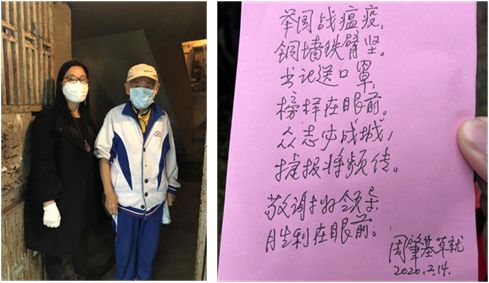 举国战瘟疫,
铜墙铁臂坚。
书记送口罩,
榜样在眼前。
众志成城,
捷报将频传。
敬谢好领导
胜利在眼前。
周肇基草就
2020.2.14.